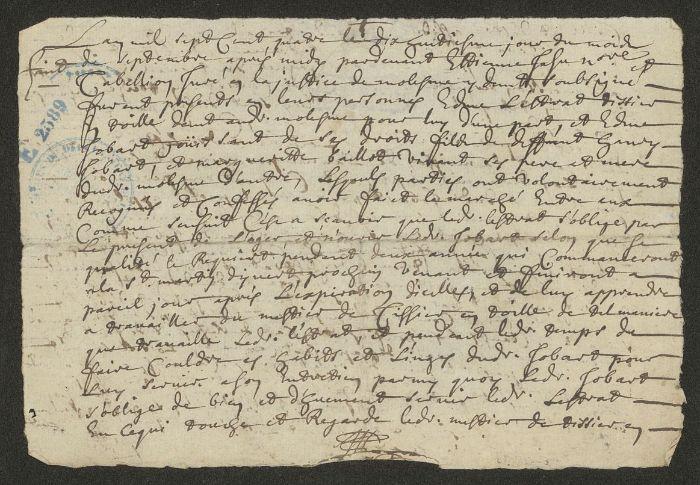 L'an mil sept Cent quatre le dix huictiesme jour du mois
de Septembre apres midy pardevant Estienne
Tabellion Juré en la justice de molesme y dem.t soubsigné
furent presents en leurs personnes Edme Lesserat tissier
en toille dem.t aud. molesme pour luy d'une part, et Edme
Jobart Jouissant de ses droits fils de deffunt
Jobart, et margueritte Baillot vivant ses pere et mere
dud. molesme d'autre, Lesquels parties ont volontairement
Recognus et Confessés avoir fait le marché Entre eux
Comme sensuit Cest a scavoir que led. lesserat s'oblige par
Le present de loger, et nourir led. Jobart selon que sa
qualité le Requiert pendant deux années qui Commanceront
a la S.t martin d'hyvert prochain venant et finiront a
pareil jour apres L'expiration d'icelles, et de luy apprendre
a travailler du mestier de Tissier en toille de tel maniere
que travaille led. lesserat, et pendant led. temps de
faire Couldre les habits et Linges dud. Jobart pour
luy servir a son Entretien parmy quoy led. Jobart
s'oblige de bien et deuement servir led. Lesserat
En ce qui touche et Regarde led. mestier de tissier en
E 2589